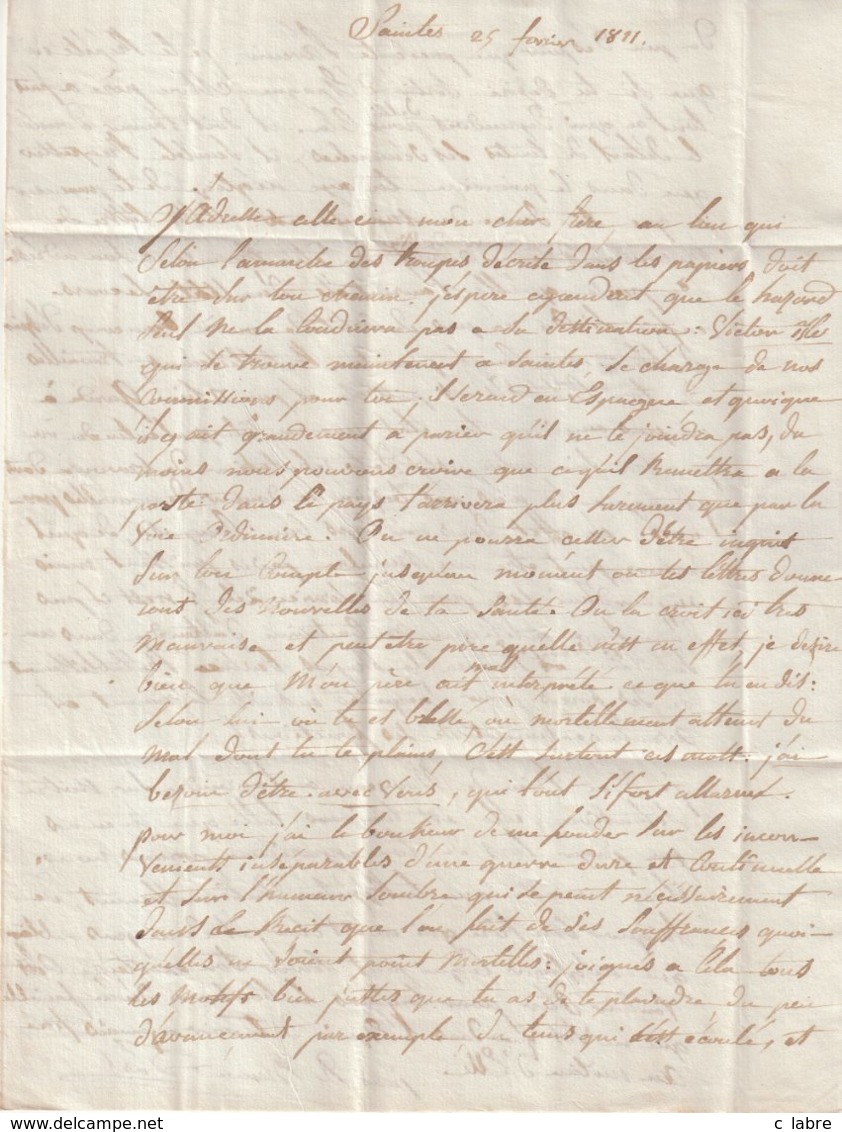 Saintes 25 fevrier 1811.
J'Adresse celle ci mon cher frere, au lieu qui
selon lamarche des troupes décrite dans les papiers, doit
être sur ton chemin. j'éspère cependent que le hazard
seul ne la Conduira pas a sa destination: Victor
qui se trouve maintenent a Saintes, se charge de nos
Commissions pour toi, il se rend en Espagne et quoique
il y ait grandement à parier qu'il ne te joindra pas, du
moins nous pouvons croire que ce qu'il Remettra a la
poste dans le pays t'arrivera plus surement que par la
Voie Ordinaire. On ne pourra cesser d'être inquiet
Sur ton Compte jusqu'au moment ou tes lettres donne-
ront des Nouvelles de ta Santé. On la croit ici tres
mauvaise et peut etre pire qu'elle n'est en effet, je desire
bien que Mon père ait mal interprété ce que tu en dis:
Selon-lui ou tu es blessé, ou mortellement atteint du
mal dont tu te plains, C'est surtout ces mots: j'ai
besoin d'être avec Vous, qui l'ont si fort allarmé.
pour moi j'ai le bonheur de me fonder sur les incon-
venients inséparables d'une guerre dure et Continuelle
et sur l'humeur sombre qui se peint nécéssairement
dans le Recit que l'on fait de ses Souffrances quoi-
qu'elles ne soient point Mortelles: joignés a Cela tous
les Motifs bien justes que tu as de te plaindre du peu
d'avancement par exemple, du tems qui s'est écoulé, et
delcampe.net
c labre